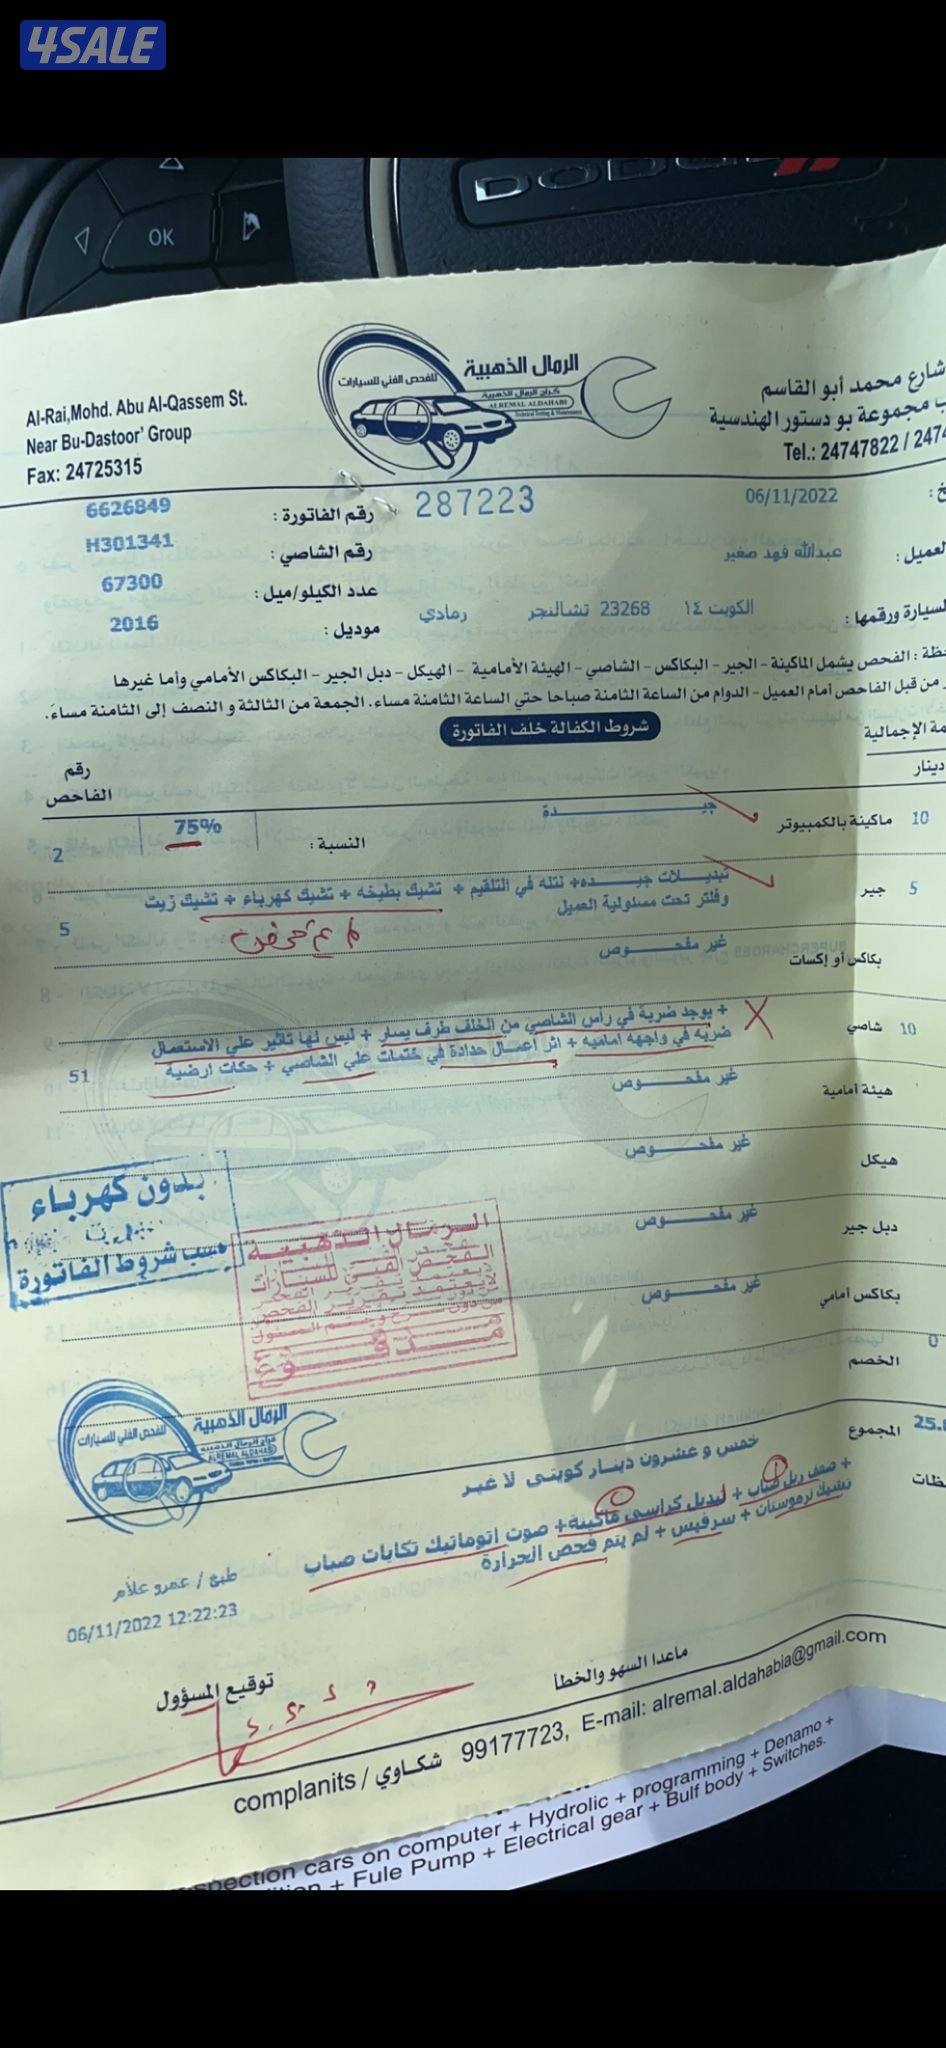 4SALE
OK
DODGE
شارع محمد أبو القاسم
مجموعة بو دستور الهندسية
Tel.: 24747822 / 2474
الرمال الذهبية
للفحص الفني للسيارات
كراج الرمال الذهبية
ALREMAL ALDAHABI
Technical Testing & Maintenance
Al-Rai,Mohd. Abu Al-Qassem St.
Near Bu-Dastoor' Group
Fax: 24725315
06/11/2022
287223
رقم الفاتورة : 6626849
العميل : عبدالله فهد صغير
رقم الشاصي : H301341
عدد الكيلو/ميل : 67300
السيارة ورقمها : الكويت ١٤ 23268 تشالنجر رمادي
موديل : 2016
الفحص يشمل الماكينة - الجير - البكاكس - الشاصي - الهيئة الأمامية - الهيكل - دبل الجير - البكاكس الأمامي وأما غيرها
من قبل الفاحص أمام العميل - الدوام من الساعة الثامنة صباحا حتي الساعة الثامنة مساء. الجمعة من الثالثة و النصف إلى الثامنة مساءً.
شروط الكفالة خلف الفاتورة
الإجمالية
دينار
رقم الفاحص
10 ماكينة بالكمبيوتر جيـــــدة النسبة : 75% 2
5 جير تبديلات جيـــده+ نتله في التلقيم + تشيك بطيخه + تشيك كهرباء + تشيك زيت
وفلتر تحت مسئولية العميل 5
بكاكس أو إكسات غير مفحـــوص
10 شاصي + يوجد ضربة في رأس الشاصي من الخلف طرف يسار + ليس لها تاثير علي الاستعمال
ضربه في واجهه اماميه + اثر اعمال حدادة في ختمات علي الشاصي + حكات ارضية 51
هيئة أمامية غير مفحـــوص
هيكل غير مفحـــوص
دبل جير غير مفحـــوص
بكاكس أمامي غير مفحـــوص
بدون كهرباء
حسب شروط الفاتورة
الرمال الذهبية
الفحص الفني للسيارات
لايعتمد تقرير الفحص
مدفوع
0 الخصم
المجموع
خمس و عشرون دينار كويتى لا غير
الرمال الذهبية
للفحص الفني للسيارات
كراج الرمال الذهبية
ALREMAL ALDAHABI
+ ضعف ربل صباب + تبديل كراسي ماكينة+ صوت اتوماتيك تكايات صباب
تشيك ثرموستات + سرفيس + لم يتم فحص الحرارة
طبع / عمرو علام
06/11/2022 12:22:23
ماعدا السهو والخطأ
توقيع المسؤول
complanits / شكاوي 99177723, E-mail: alremal.aldahabia@gmail.com
spection cars on computer + Hydrolic + programming + Denamo +
+ Fule Pump + Electrical gear + Bulf body + Switches.